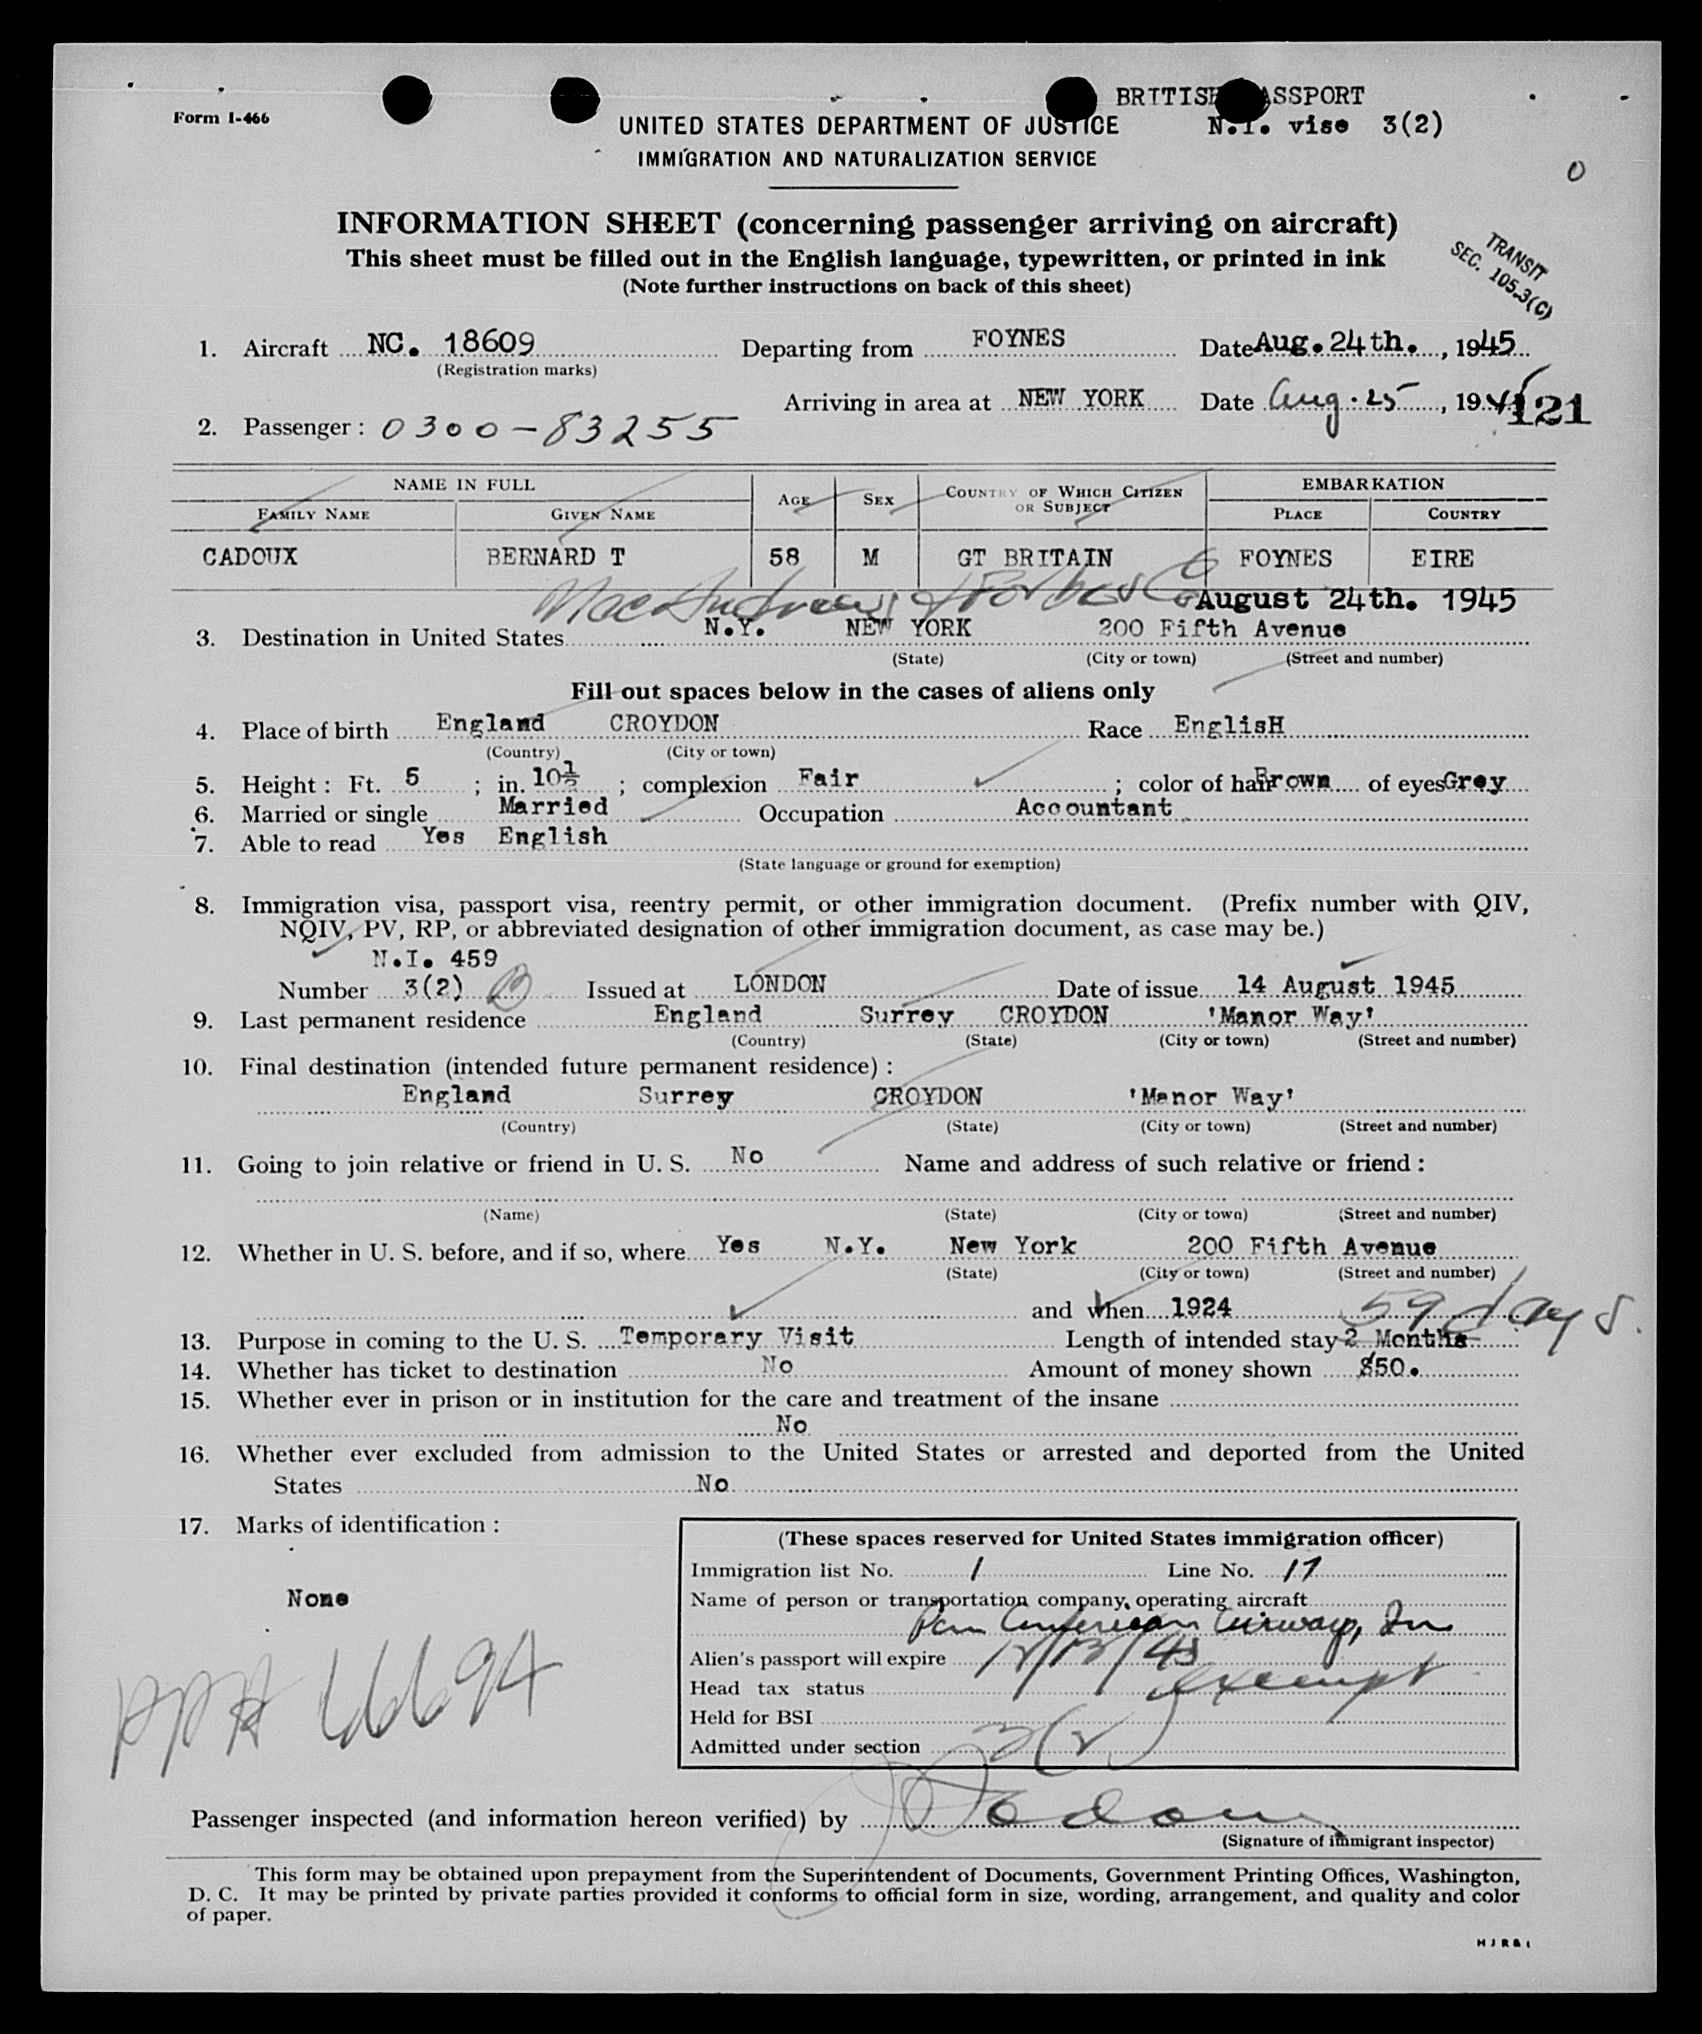 Form I-466
BRITISH PASSPORT
UNITED STATES DEPARTMENT OF JUSTICE
N.I. vise 3(2)
IMMIGRATION AND NATURALIZATION SERVICE
0
INFORMATION SHEET (concerning passenger arriving on aircraft)
This sheet must be filled out in the English language, typewritten, or printed in ink
(Note further instructions on back of this sheet)
TRANSIT
SEC. 105.3(C)
1. Aircraft NC. 18609 Departing from FOYNES Date Aug. 24th., 1945
(Registration marks)
Arriving in area at NEW YORK Date Aug. 25, 1945
121
2. Passenger : 0300-83255
NAME IN FULL AGE SEX COUNTRY OF WHICH CITIZEN OR SUBJECT EMBARKATION
FAMILY NAME GIVEN NAME PLACE COUNTRY
CADOUX BERNARD T 58 M GT BRITAIN FOYNES EIRE
MacAndrews & Forbes Co August 24th. 1945
3. Destination in United States N.Y. NEW YORK 200 Fifth Avenue
(State) (City or town) (Street and number)
Fill out spaces below in the cases of aliens only
4. Place of birth England CROYDON Race EnglisH
(Country) (City or town)
5. Height : Ft. 5 ; in. 10½ ; complexion Fair ; color of hair Brown of eyes Grey
6. Married or single Married Occupation Accountant
7. Able to read Yes English
(State language or ground for exemption)
8. Immigration visa, passport visa, reentry permit, or other immigration document. (Prefix number with QIV,
NQIV, PV, RP, or abbreviated designation of other immigration document, as case may be.)
N.I. 459
Number 3(2) Issued at LONDON Date of issue 14 August 1945
9. Last permanent residence England Surrey CROYDON 'Manor Way'
(Country) (State) (City or town) (Street and number)
10. Final destination (intended future permanent residence) :
England Surrey CROYDON 'Manor Way'
(Country) (State) (City or town) (Street and number)
11. Going to join relative or friend in U. S. No Name and address of such relative or friend :
(Name) (State) (City or town) (Street and number)
12. Whether in U. S. before, and if so, where Yes N.Y. New York 200 Fifth Avenue
(State) (City or town) (Street and number)
and when 1924 59 days.
13. Purpose in coming to the U. S. Temporary Visit Length of intended stay 2 Months
14. Whether has ticket to destination No Amount of money shown $50.
15. Whether ever in prison or in institution for the care and treatment of the insane
No
16. Whether ever excluded from admission to the United States or arrested and deported from the United
States No
17. Marks of identification :
None
(These spaces reserved for United States immigration officer)
Immigration list No. 1 Line No. 17
Name of person or transportation company operating aircraft
Pan American Airways, Inc
Alien's passport will expire
Head tax status exempt
Held for BSI
Admitted under section 3(2)
Passenger inspected (and information hereon verified) by
(Signature of immigrant inspector)
This form may be obtained upon prepayment from the Superintendent of Documents, Government Printing Offices, Washington,
D. C. It may be printed by private parties provided it conforms to official form in size, wording, arrangement, and quality and color
of paper.